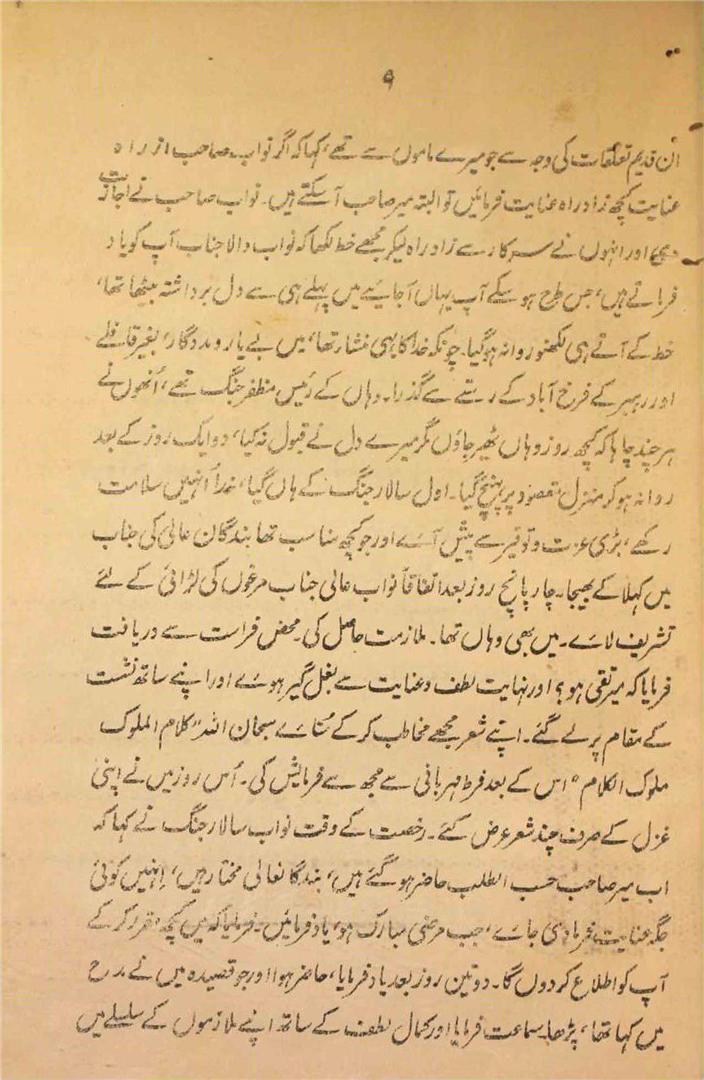 ۹
ان قدیم تعلقات کی وجہ سے جو میرے ماموں سے تھے، کہا کہ اگر نواب صاحب از راہ
عنایت کچھ زاد راہ عنایت فرمائیں تو البتہ میر صاحب آ سکتے ہیں۔ نواب صاحب نے اجازت
دی اور انہوں نے سرکار سے زاد راہ لیکر مجھے خط لکھا کہ نواب والا جناب آپ کو یاد
فرماتے ہیں، جس طرح ہو سکے آپ یہاں آ جائیے میں پہلے ہی سے دل برداشتہ بیٹھا تھا،
خط کے آتے ہی لکھنؤ روانہ ہو گیا۔ چونکہ خدا کا یہی منشار تھا، میں بے یار و مددگار، بغیر قافلے
اور رہبر کے فرخ آباد کے رستے سے گذرا۔ وہاں کے رئیس مظفر جنگ تھے، اُنھوں نے
ہر چند چاہا کہ کچھ روز وہاں ٹھیر جاؤں مگر میرے دل نے قبول نہ کیا، دو ایک روز کے بعد
روانہ ہو کر منزل مقصود پر پہنچ گیا۔ اول سالار جنگ کے ہاں گیا، خدا اُنہیں سلامت
رکھے، بڑی عزت و توقیر سے پیش آئے اور جو کچھ مناسب تھا بندگان عالی کی جناب
میں کہلا کے بھیجا۔ چار پانچ روز بعد اتفاقاً نواب عالی جناب مرغوں کی لڑائی کے لئے
تشریف لائے۔ میں بھی وہاں تھا۔ ملازمت حاصل کی۔ محض فراست سے دریافت
فرمایا کہ میر تقی ہو؟ اور نہایت لطف و عنایت سے بغل گیر ہوئے اور اپنے ساتھ نشست
کے مقام پر لے گئے۔ اپنے شعر مجھے مخاطب کر کے سُنائے سبحان اللہ "کلام الملوک
ملوک الکلام" اس کے بعد فرط مہربانی سے مجھ سے فرمایش کی۔ اُس روز میں نے اپنی
غزل کے صرف چند شعر عرض کئے۔ رخصت کے وقت نواب سالار جنگ نے کہا کہ
اب میر صاحب حسب الطلب حاضر ہو گئے ہیں، بندگانعالی مختار ہیں، اِنہیں کوئی
جگہ عنایت فرما دی جائے، جب مرضی مبارک ہو، یاد فرمائیں۔ فرمایا کہ میں کچھ مقرر کر کے
آپ کو اطلاع کر دوں گا۔ دو تین روز بعد یاد فرمایا، حاضر ہوا اور جو قصیدہ میں نے مدح
میں کہا تھا، پڑھا۔ سماعت فرمایا اور کمال لطف کے ساتھ اپنے ملازموں کے سلسلے میں